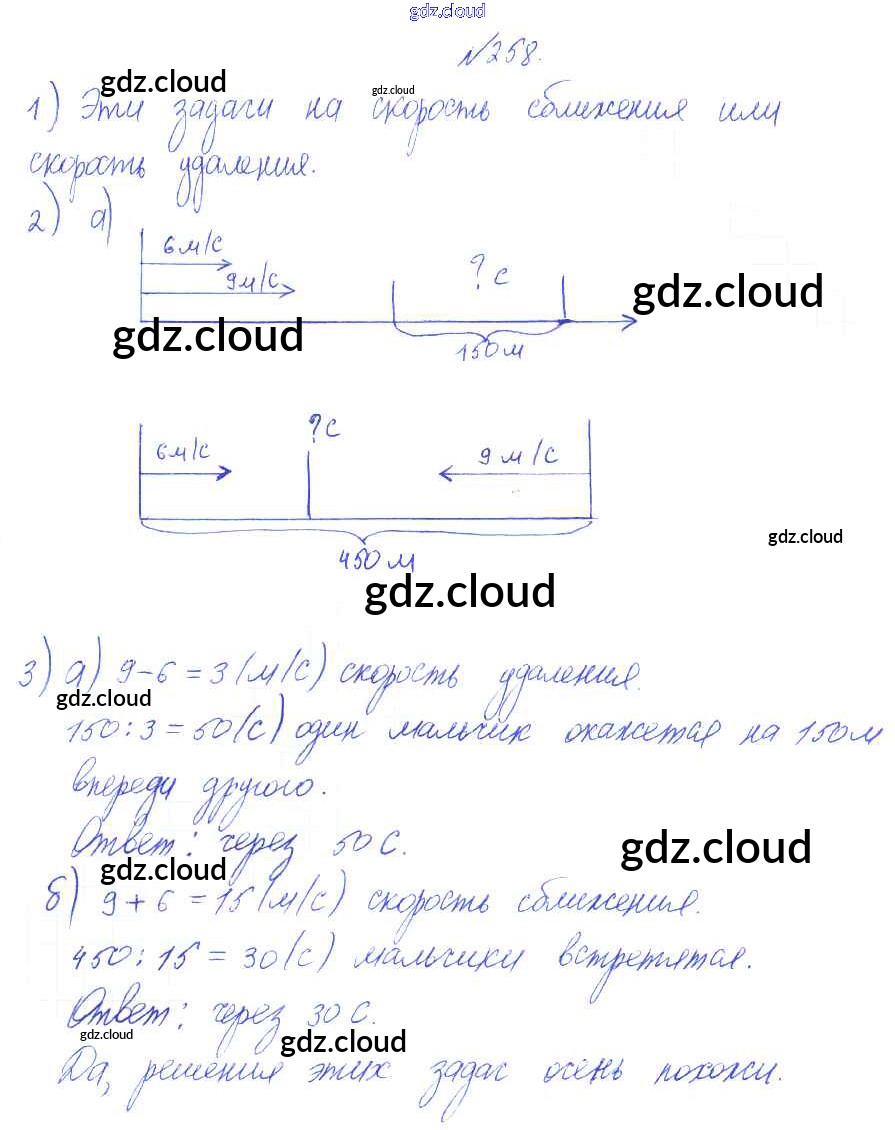 gdz.cloud
№258.
gdz.cloud
gdz.cloud
1) Эти задачи на скорость сближения или
скорость удаления.
2) а)
6м/с
9м/с
? с
gdz.cloud
gdz.cloud
150м
? с
6м/с
9 м/с
gdz.cloud
450 м
gdz.cloud
3) а) 9-6 = 3 (м/с) скорость удаления.
gdz.cloud
150:3 = 50(с) один мальчик окажется на 150м
впереди другого.
Ответ: через 50 с.
gdz.cloud
gdz.cloud
б) 9+6 = 15 (м/с) скорость сближения.
450:15 = 30(с) мальчики встретятся.
Ответ: через 30 с.
gdz.cloud
gdz.cloud
Да, решения этих задач очень похожи.